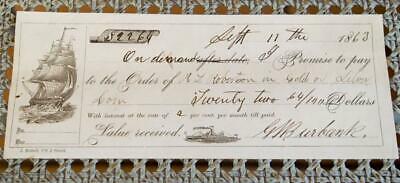 $22.64 Sept 11 the 1863
On demand after date, I Promise to pay
to the Order of Roberson in Gold or Silver
Coin Twenty two 64/100 Dollars
With interest at the rate of 2 per cent. per month till paid.
Value received. Burbank.